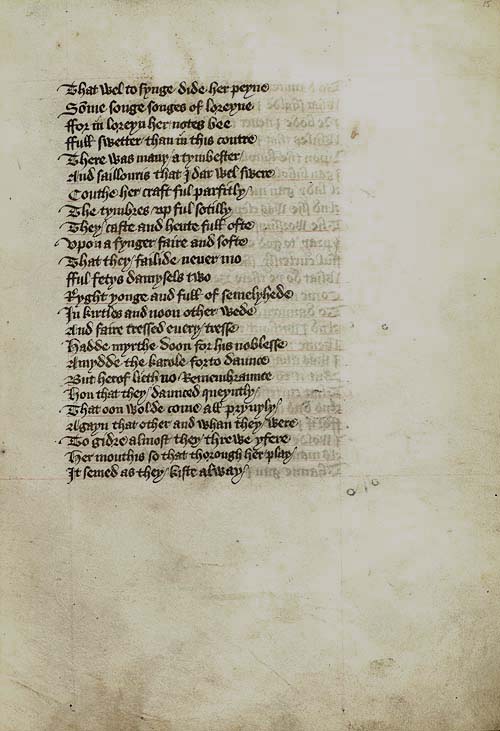 That wel to synge dide her peyne
Sōme songe songes of loreyne
ffor in loreyn her notes bee
ffull swetter than in this contre
There was many a tymbester
And saillouris that I dar wel swere
Couthe her craft ful parfitly
The tymbres vp ful sotilly
They caste and hente full ofte
vpon a fynger faire and softe
That they failide never mo
fful fetys damysels two
Ryght yonge and full of semelyhede
In kirtles and noon other wede
And faire tressed euery tresse
Hadde myrthe doon for his noblesse
Amydde the karole forto daunce
But herof lieth no Remembraunce
Hou that they daunced queyntly
That oon wolde come all pryuyly
Agayn that other and whan they were
To gidre almost they threwe yfere
Her mouthis so that thorough her play
It semed as they kiste alway